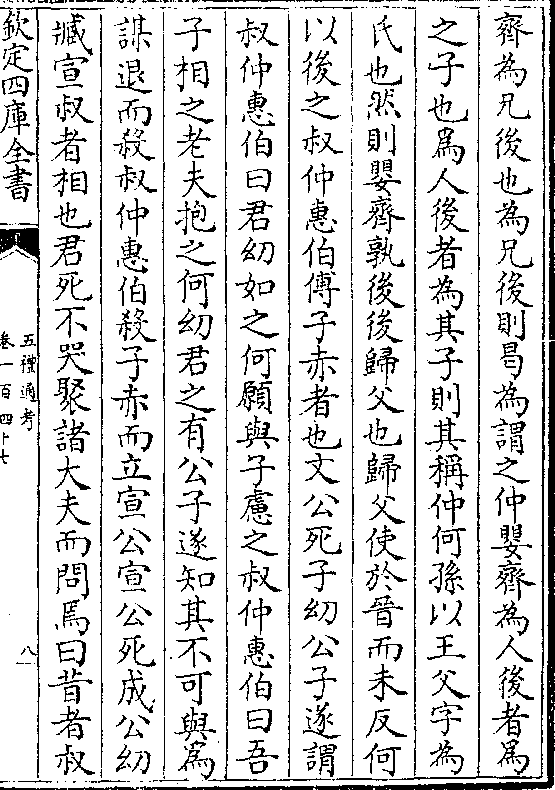 齊為兄後也為兄後則曷為謂之仲嬰齊為人後者爲
之子也爲人後者為其子則其稱仲何孫以王父字為
氏也然則嬰齊孰後後歸父也歸父使於晉而未反何
以後之叔仲惠伯傅子赤者也文公死子幼公子遂謂
叔仲惠伯曰君幼如之何願與子慮之叔仲惠伯曰吾
子相之老夫抱之何幼君之有公子遂知其不可與爲
謀退而殺叔仲惠伯殺子赤而立宣公宣公死成公幼
臧宣叔者相也君死不哭聚諸大夫而問焉曰昔者叔
欽定四庫全書
五禮通考
卷一百四十七
八